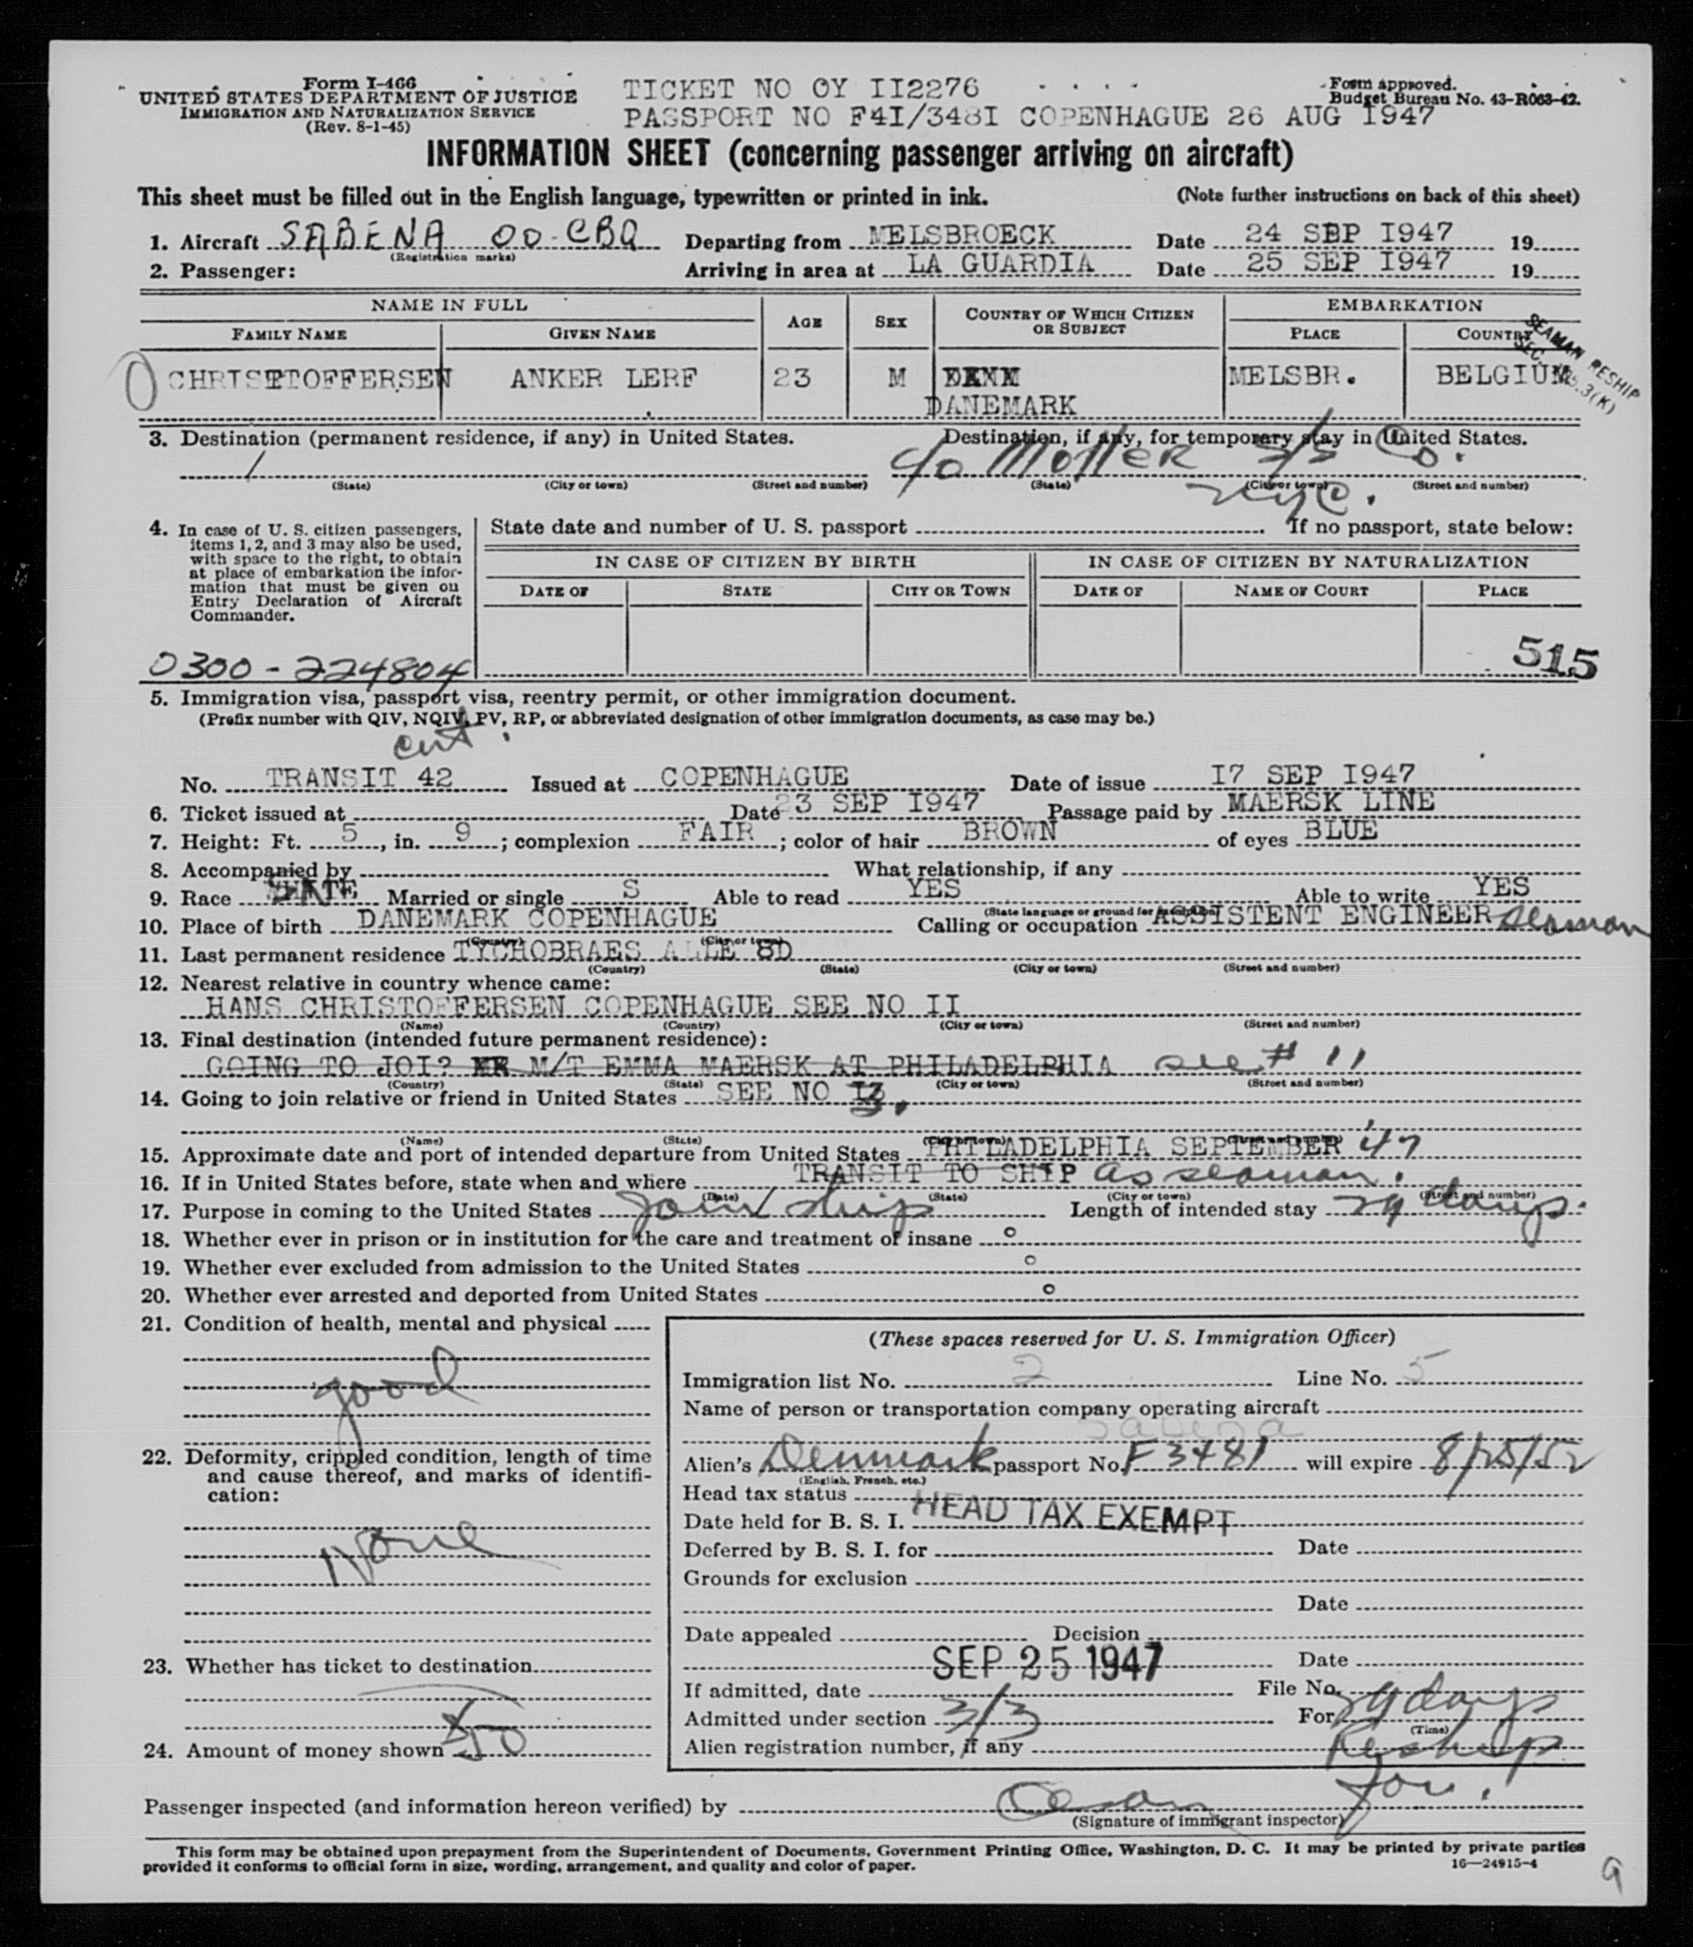 Form I-466
UNITED STATES DEPARTMENT OF JUSTICE
IMMIGRATION AND NATURALIZATION SERVICE
(Rev. 8-1-45)
TICKET NO OY II2276
PASSPORT NO F4I/348I COPENHAGUE 26 AUG 1947
Form approved.
Budget Bureau No. 43-R063-42.
INFORMATION SHEET (concerning passenger arriving on aircraft)
This sheet must be filled out in the English language, typewritten or printed in ink. (Note further instructions on back of this sheet)
1. Aircraft SABENA OO-CBQ Departing from MELSBROECK Date 24 SEP I947 19
(Registration marks)
2. Passenger: Arriving in area at LA GUARDIA Date 25 SEP I947 19
NAME IN FULL EMBARKATION
FAMILY NAME GIVEN NAME AGE SEX COUNTRY OF WHICH CITIZEN OR SUBJECT PLACE COUNTRY
SEAMAN RESHIP
CHRISTOFFERSEN ANKER LERF 23 M MELSBR. BELGIUM
DANEMARK
3. Destination (permanent residence, if any) in United States. Destination, if any, for temporary stay in United States.
/ c/o Moller S/S Co.
(State) (City or town) (Street and number) (State) (City or town) (Street and number)
NYC.
4. In case of U. S. citizen passengers, items 1, 2, and 3 may also be used, with space to the right, to obtain at place of embarkation the information that must be given on Entry Declaration of Aircraft Commander.
State date and number of U. S. passport . If no passport, state below:
IN CASE OF CITIZEN BY BIRTH IN CASE OF CITIZEN BY NATURALIZATION
DATE OF STATE CITY OR TOWN DATE OF NAME OF COURT PLACE
515
0300-224804
5. Immigration visa, passport visa, reentry permit, or other immigration document.
(Prefix number with QIV, NQIV, PV, RP, or abbreviated designation of other immigration documents, as case may be.)
cert.
No. TRANSIT 42 Issued at COPENHAGUE Date of issue I7 SEP I947
6. Ticket issued at Date 23 SEP I947 Passage paid by MAERSK LINE
7. Height: Ft. 5, in. 9; complexion FAIR; color of hair BROWN of eyes BLUE
8. Accompanied by What relationship, if any
9. Race Married or single S Able to read YES Able to write YES
10. Place of birth DANEMARK COPENHAGUE Calling or occupation ASSISTENT ENGINEER seaman
(Country) (City or town)
11. Last permanent residence TYCHOBRAES ALLE 8D
(Country) (State) (City or town) (Street and number)
12. Nearest relative in country whence came:
HANS CHRISTOFFERSEN COPENHAGUE SEE NO II
(Name) (Country) (City or town) (Street and number)
13. Final destination (intended future permanent residence):
GOING TO JOI? M/T EMMA MAERSK AT PHILADELPHIA see # 11
(Country) (State) (City or town) (Street and number)
14. Going to join relative or friend in United States SEE NO I3.
(Name) (State) (City or town) (Street and number)
15. Approximate date and port of intended departure from United States PHILADELPHIA SEPTEMBER '47
16. If in United States before, state when and where TRANSIT TO SHIP as seaman.
(Date) (State) (City or town) (Street and number)
17. Purpose in coming to the United States join ship Length of intended stay 29 days.
18. Whether ever in prison or in institution for the care and treatment of insane o
19. Whether ever excluded from admission to the United States o
20. Whether ever arrested and deported from United States o
21. Condition of health, mental and physical
good
22. Deformity, crippled condition, length of time and cause thereof, and marks of identification:
None
23. Whether has ticket to destination
24. Amount of money shown $50
(These spaces reserved for U. S. Immigration Officer)
Immigration list No. 2 Line No. 5
Name of person or transportation company operating aircraft
Sabena
Alien's Denmark passport No. F3481 will expire 8/25/52
(English, French, etc.)
Head tax status HEAD TAX EXEMPT
Date held for B. S. I.
Deferred by B. S. I. for Date
Grounds for exclusion
Date
Date appealed Decision
Date
If admitted, date SEP 25 1947 File No.
Admitted under section 3/3 For 29 days
(Time)
Alien registration number, if any Reship
for.
Passenger inspected (and information hereon verified) by
(Signature of immigrant inspector)
This form may be obtained upon prepayment from the Superintendent of Documents, Government Printing Office, Washington, D. C. It may be printed by private parties
provided it conforms to official form in size, wording, arrangement, and quality and color of paper. 16—24915-4
9